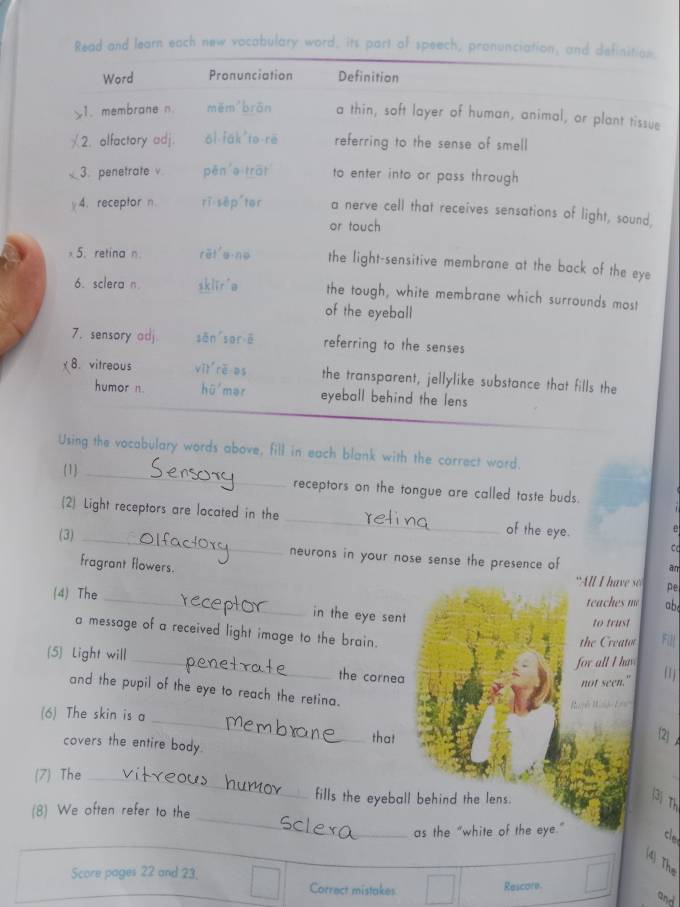 Read and learn each new vocabulary word, its part of speech, pronunciation, and definition.
Word Pronunciation Definition
1. membrane n. mĕm´brān a thin, soft layer of human, animal, or plant tissue
2. olfactory adj. ŏl·făk´tə·rē referring to the sense of smell
3. penetrate v. pĕn´ə·trāt´ to enter into or pass through
4. receptor n. rĭ·sĕp´tər a nerve cell that receives sensations of light, sound,
or touch
5. retina n. rĕt´ə·nə the light-sensitive membrane at the back of the eye
6. sclera n. sklîr´ə the tough, white membrane which surrounds most
of the eyeball
7. sensory adj. sĕn´sər·ē referring to the senses
8. vitreous vĭt´rē·əs the transparent, jellylike substance that fills the
humor n. hū´mər eyeball behind the lens
Using the vocabulary words above, fill in each blank with the correct word.
(1) Sensory receptors on the tongue are called taste buds.
(2) Light receptors are located in the retina of the eye.
(3) Olfactory neurons in your nose sense the presence of
fragrant flowers.
(4) The receptor in the eye sent
a message of a received light image to the brain.
(5) Light will penetrate the cornea
and the pupil of the eye to reach the retina.
(6) The skin is a Membrane that
covers the entire body.
(7) The vitreous humor fills the eyeball behind the lens.
(8) We often refer to the Sclera as the "white of the eye."
"All I have
teaches me
to trust
the Creator
for all I have
not seen."
Score pages 22 and 23.
Correct mistakes.
Rescore.
Fill
(1)
(2)
(3) Th
(4) The
and